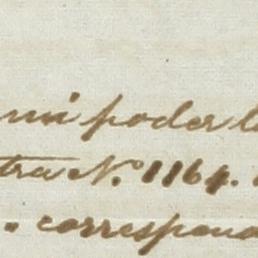 mi poder l
tra N. 1164.
" correspond